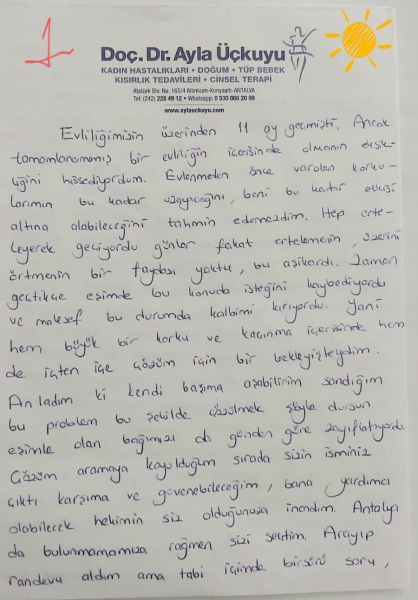 1
Doç. Dr. Ayla Üçkuyu
KADIN HASTALIKLARI • DOĞUM • TÜP BEBEK
KISIRLIK TEDAVİLERİ • CİNSEL TERAPİ
Atatürk Blv. No: 165/4 Altınkum-Konyaaltı-ANTALYA
Tel: (242) 228 49 12 • Whatsapp: 0 530 066 20 90
www.aylauckuyu.com
Evliliğimizin üzerinden 11 ay geçmişti. Ancak
tamamlanamamış bir evliliğin içerisinde olmanın eksik-
liğini hissediyordum. Evlenmeden önce varolan korku-
larımın bu kadar beni bu kadar etkisi
altına alabileceğini tahmin edemezdim. Hep erte-
leyerek geçiyordu günler fakat ertelemenin, üzerini
örtmenin bir faydası yoktu, bu aşikardı. Zaman
geçtikçe eşimde bu konuda isteğini kaybediyordu
ve malesef bu durumda kalbimi kırıyordu. Yani
hem büyük bir korku ve kaçınma içerisinde hem
de içten içe çözüm için bir bekleyişteydim.
Anladım ki kendi başıma aşabilirim sandığım
bu problem bu şekilde çözülmek şöyle dursun
eşimle olan bağımızı da günden güne zayıflatıyordu
Çözüm aramaya koyulduğum sırada sizin isminiz
çıktı karşıma ve güvenebileceğim, bana yardımcı
olabilecek hekimin siz olduğunuza inandım. Antalya
da bulunmamamıza rağmen sizi seçtim. Arayıp
randevu aldım ama tabi içimde birsürü soru,